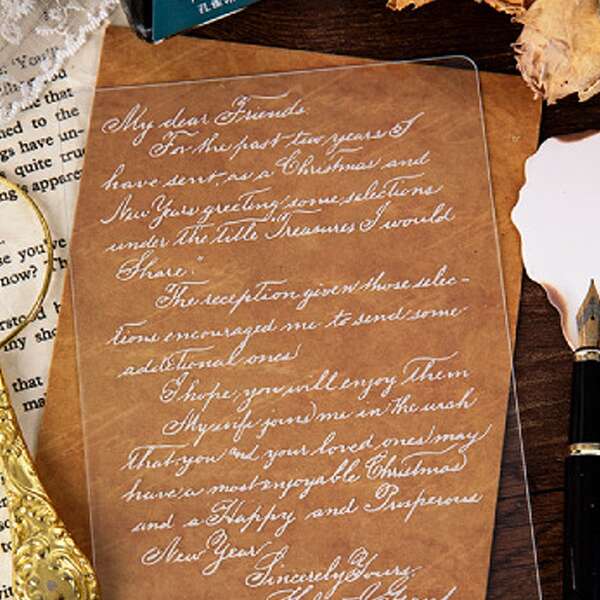 孔雀
that
ned to the
ngs have un-
quite true
appare
se you've
now?" "I
that
My dear Friends
For the past two years I
have sent, as a Christmas and
New Years greeting some selections
under the title "Treasures I would
Share."
The reception given those selec-
tions encouraged me to send some
additional ones
I hope you will enjoy them
My wife joins me in the wish
that you and your loved ones may
have a most enjoyable Christmas
and a Happy and Prosperous
New Year
Sincerely Yours,